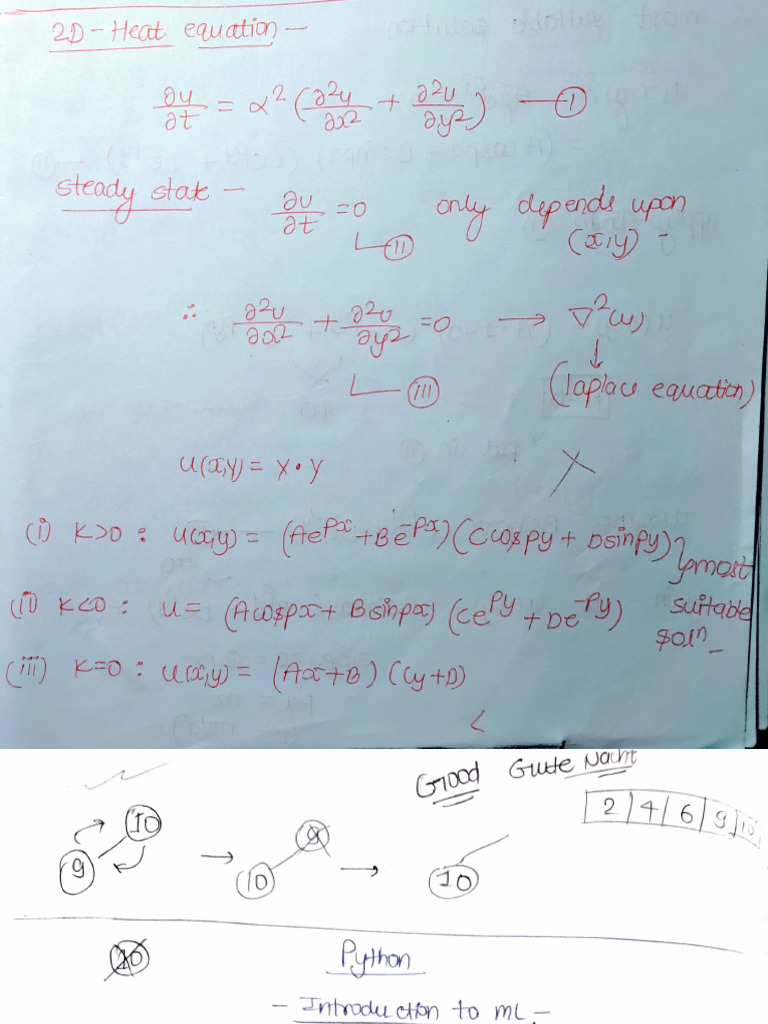 2D-Heat equation -
∂u/∂t = α² (∂²u/∂x² + ∂²u/∂y²) — I
steady state - ∂u/∂t = 0 only depends upon
II (x,y) -
∴ ∂²u/∂x² + ∂²u/∂y² = 0 → ∇²(u)
III (laplace equation)
u(x,y) = X · Y
(i) K>0 : u(x,y) = (Ae^px + Be^-px)(Ccospy + Dsinpy)
(ii) K<0 : u = (Acospx + Bsinpx) (Ce^py + De^-py)
} most
suitable
solⁿ -
(iii) K=0 : u(x,y) = (Ax+B) (Cy+D)
Good Gute Nacht
2 | 4 | 6 | 9 | 10
10 9
9 → 10 → 10
10
Python
- Introduction to ML -